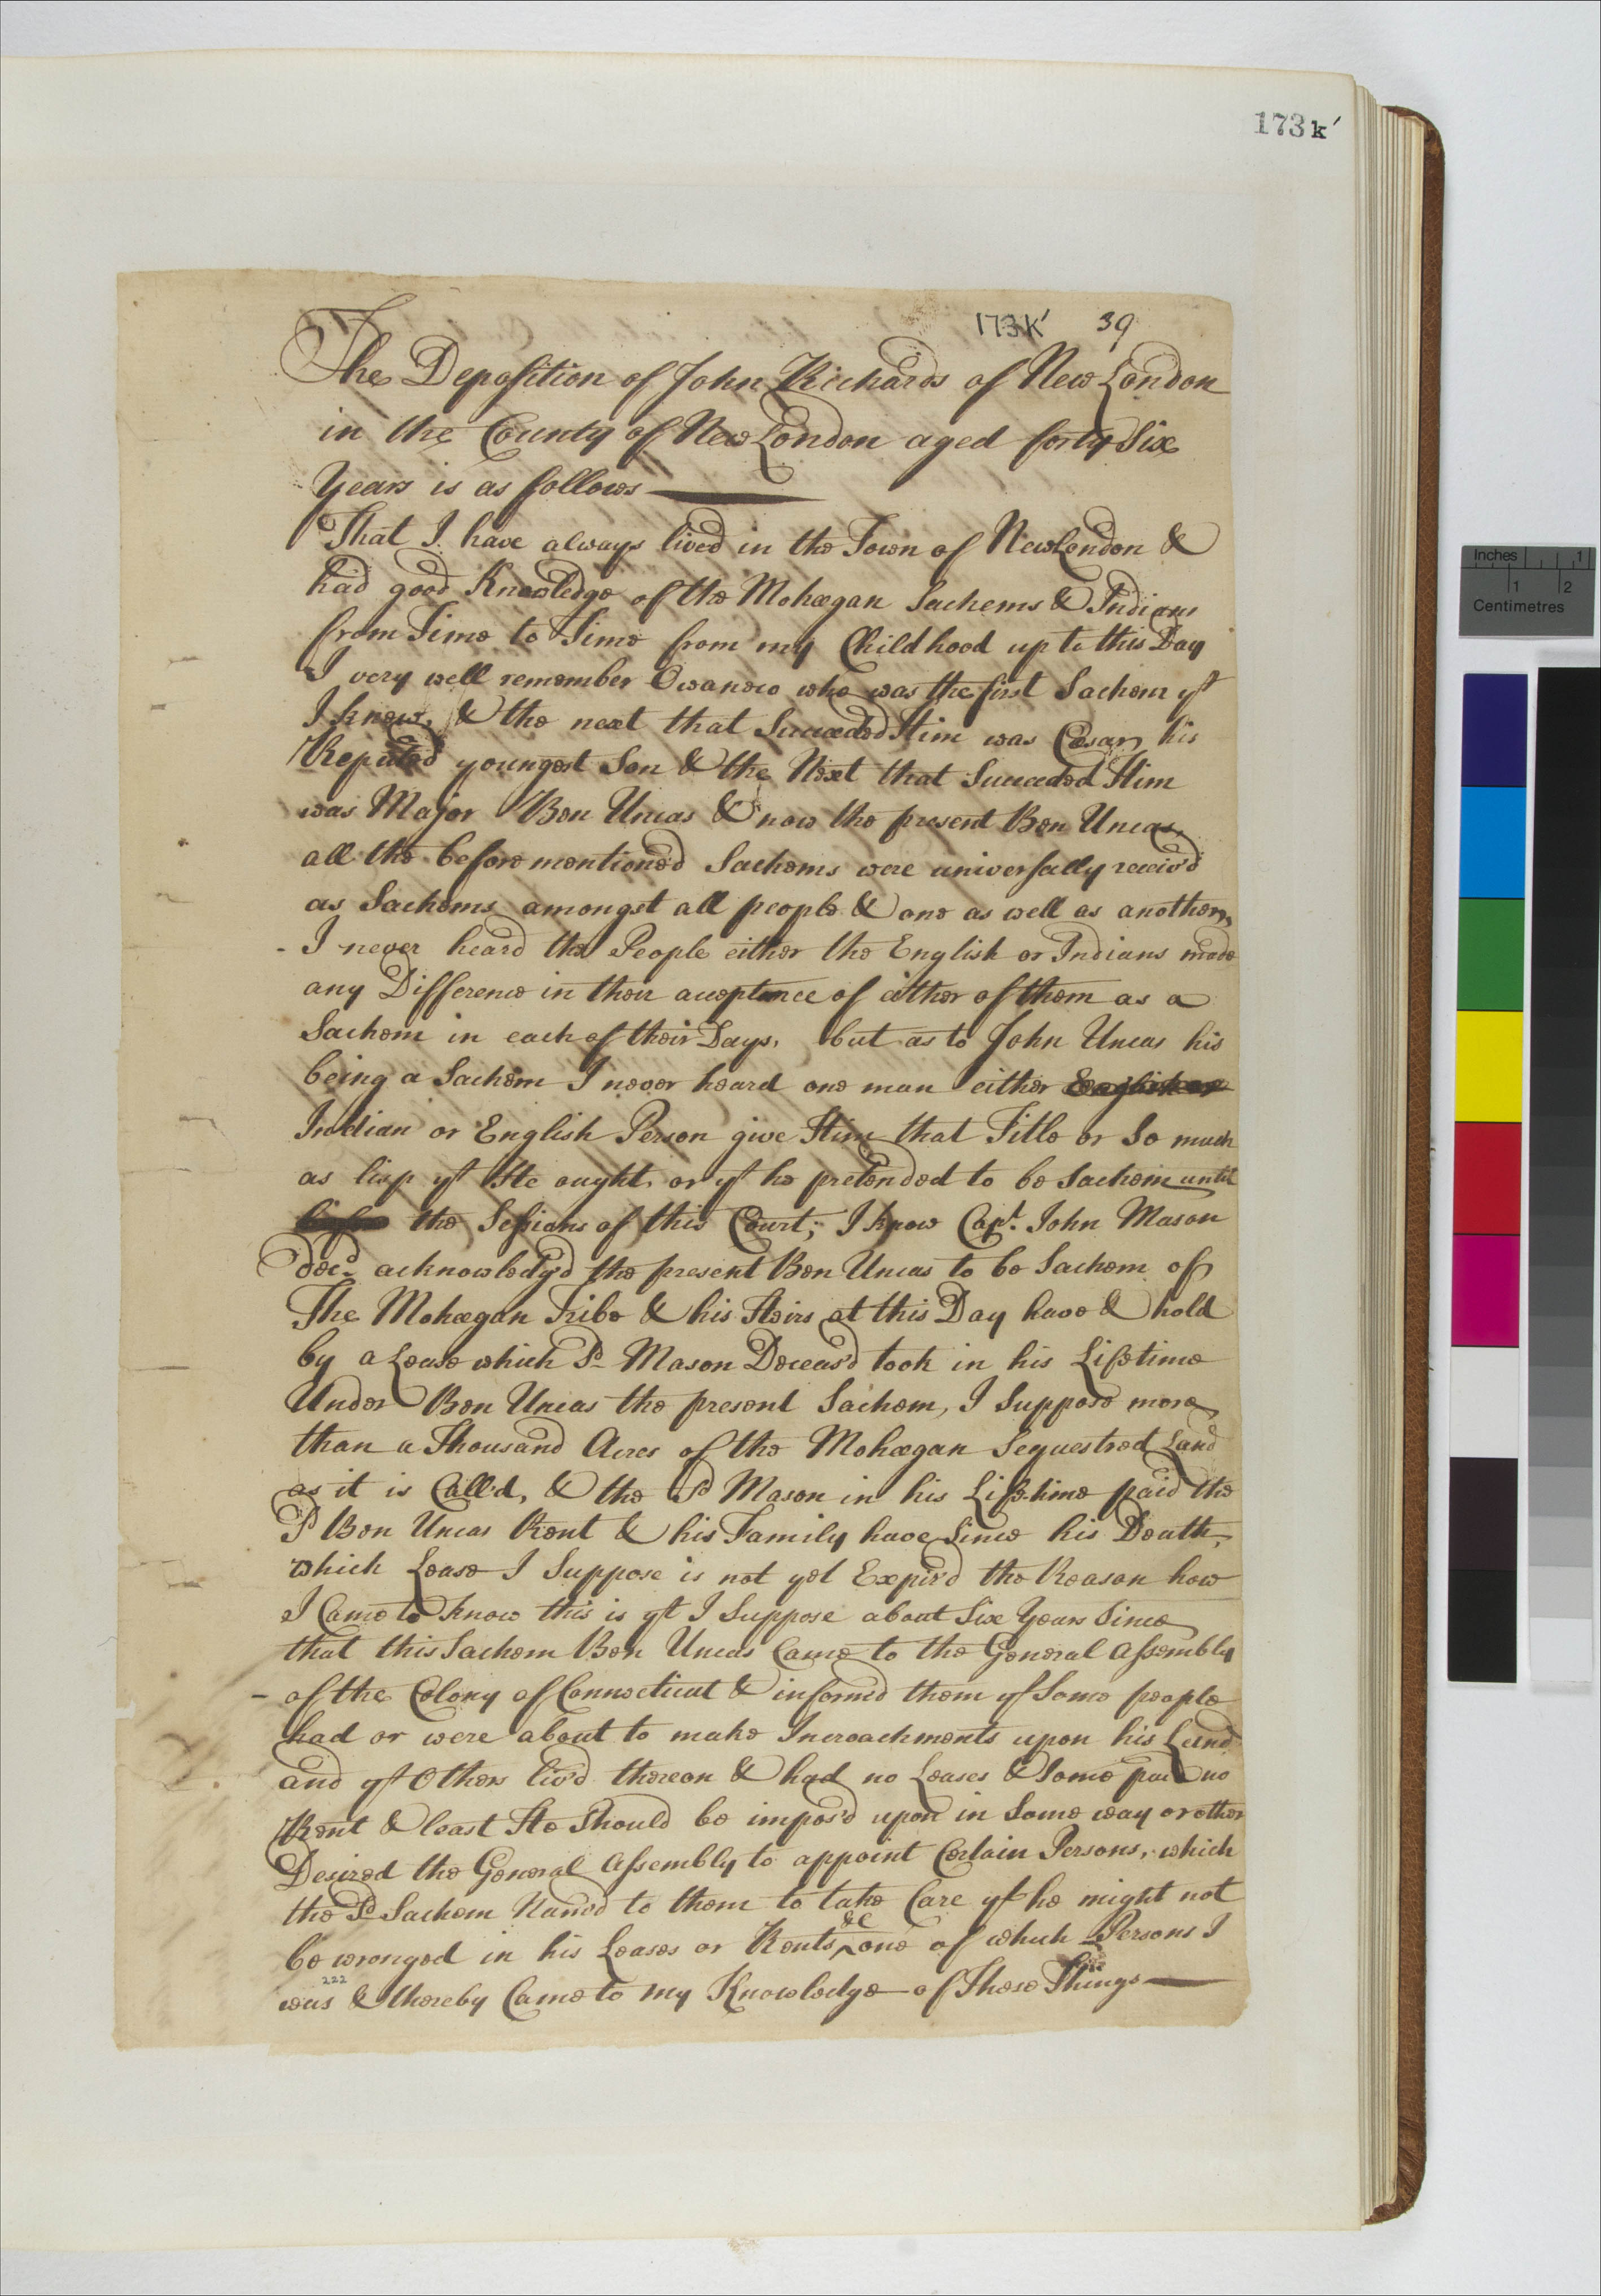 173k'
173K' 39
The Deposition of John Richards of New London
in the County of New London aged forty Six
Years is as follows
That I have always lived in the Town of New London &
had good Knowledge of the Mohegan Sachems & Indians
from Time to Time from my Childhood up to this Day
I very well remember Owaneco who was the first Sachem yt
I knew, & the next that Succeeded Him was Cesar his
Reputed youngest Son & the Next that Succeeded Him
was Major Ben Uncas & now the present Ben Uncas,
all the before mentioned Sachems were universally receiv'd
as Sachems amongst all people & one as well as another,
- I never heard tha People either the English or Indians made
any Difference in their acceptance of either of them as a
Sachem in each of their Days, but as to John Uncas his
being a Sachem I never heard one man either English or
Indian or English Person give Him that Title or So much
as lisp yt He ought or yt he pretended to be Sachem until
before the Sessions of this Court; I know Capt. John Mason
decd acknowledg'd the present Ben Uncas to be Sachem of
The Mohegan Tribe & his Heirs at this Day have & hold
by a Lease which Sd Mason Deceas'd took in his Lifetime
Under Ben Uncas the present Sachem, I Suppose more
than a Thousand Acres of the Mohegan Sequestred Land
as it is Call'd, & the Sd Mason in his Life-time paid the
Sd Ben Uncas Rent & his Family have Since his Death,
which Lease I Suppose is not yet Expir'd the Reason how
I Came to know this is yt I Suppose about Six Years Since
that this Sachem Ben Uncas Came to the General Assembly
- of the Colony of Connecticut & informed them yt Some people
had or were about to make Incroachments upon his Land
and yt Others liv'd thereon & had no Leases & Some paid no
Rent & least He Should be impos'd upon in Some way or other
Desired the General Assembly to appoint Certain Persons, which
the Sd Sachem Nam'd to them to take Care yt he might not
be wronged in his Leases or Rents &c one of which Persons I
222
was & thereby Came to my Knowledge of These Things
Inches 1
1 2
Centimetres